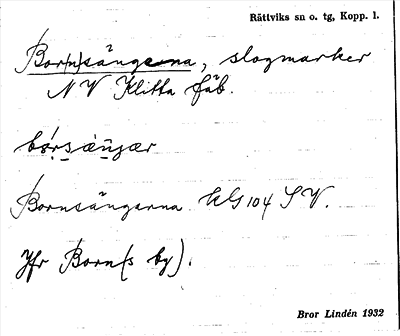 Rättviks sn o. tg, Kopp. l.
Bor(n)sängarna, slogmarker
NV Klitta fäb.
Bornsängarna KG 104 SV.
Jfr Born(s by).
Bror Lindén 1932